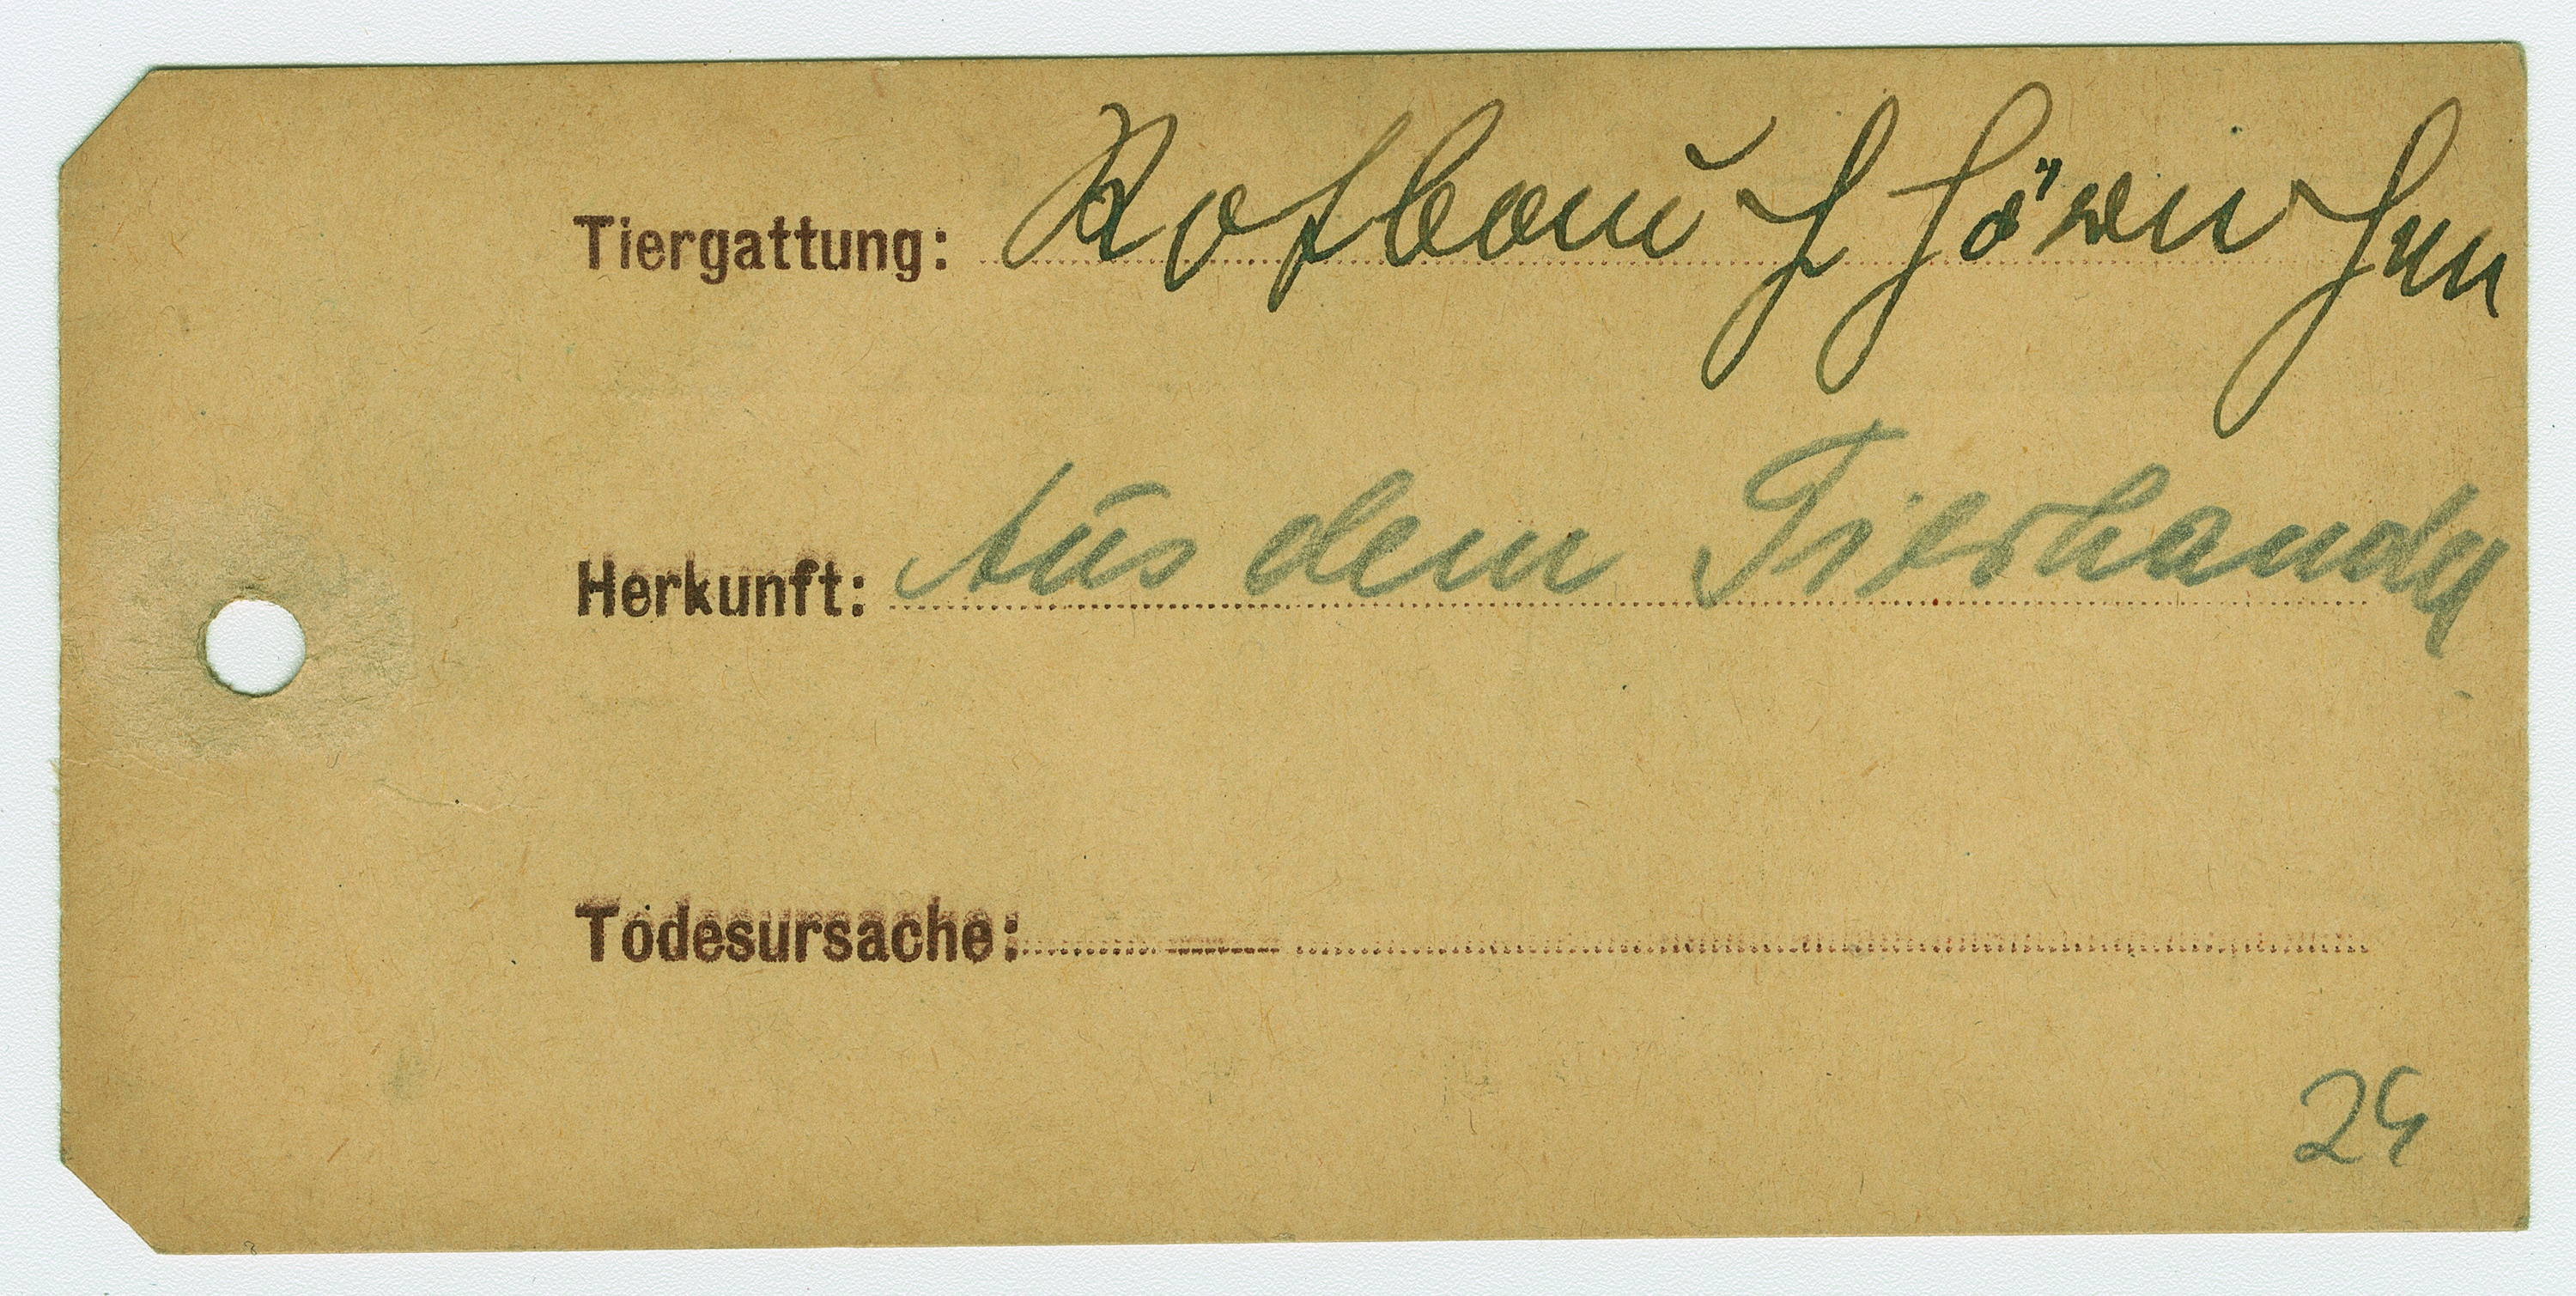 Tiergattung: Rotbauchhörnchen
Herkunft: Aus dem Tierhandel
Todesursache:
24